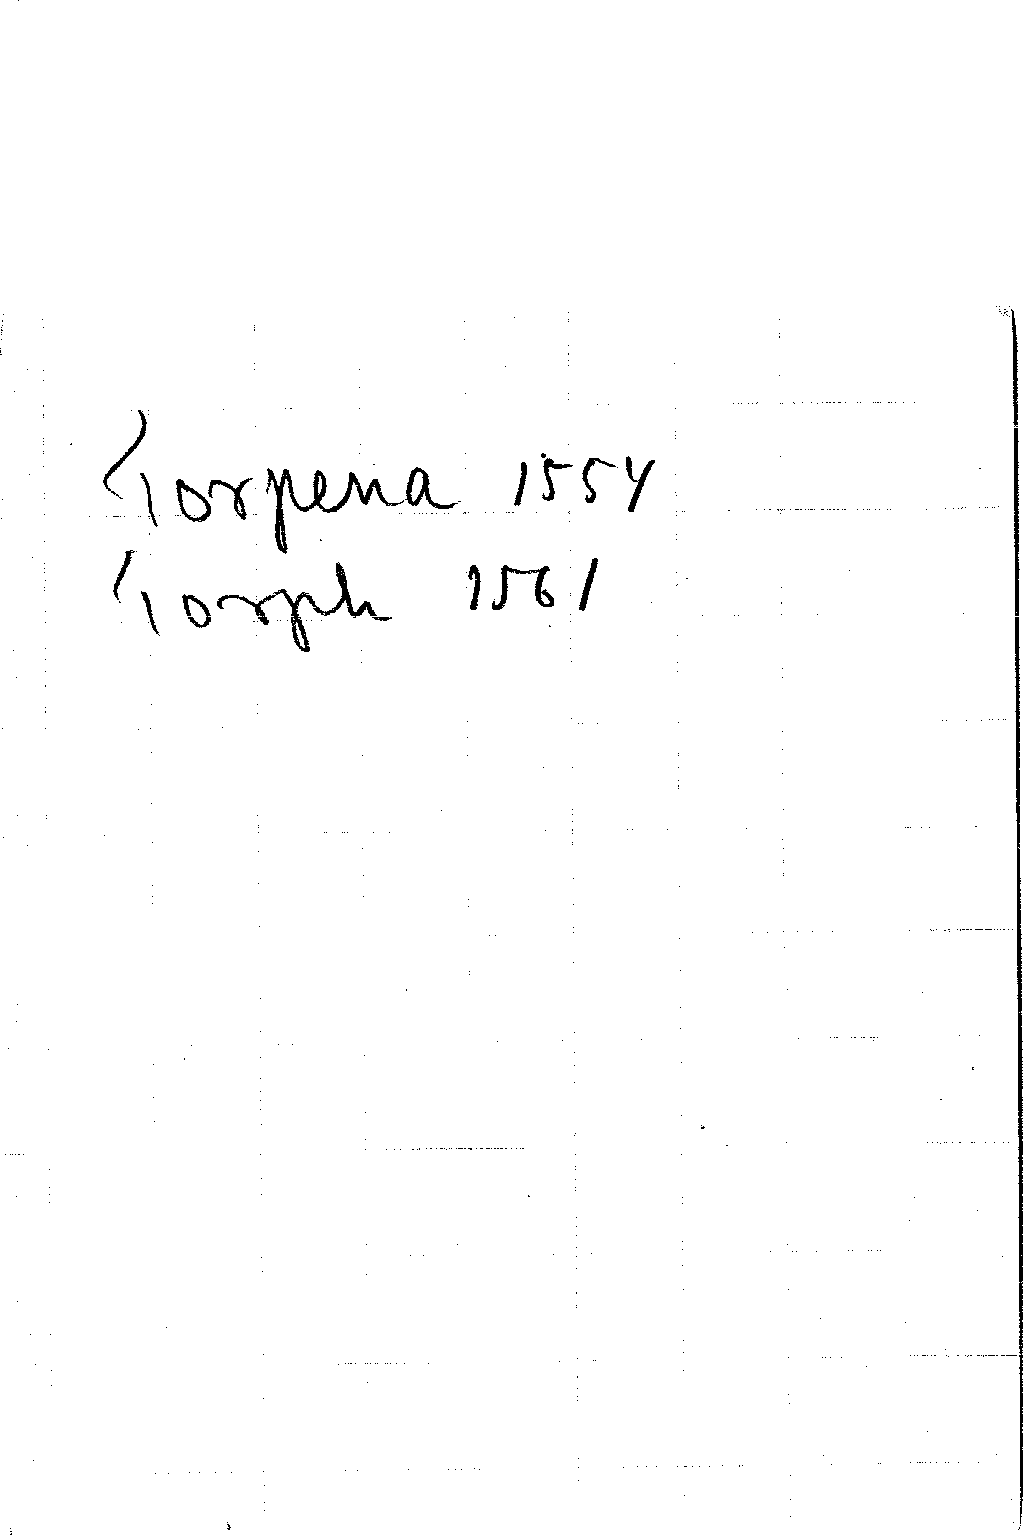 Torpena 1554
Torph 1561